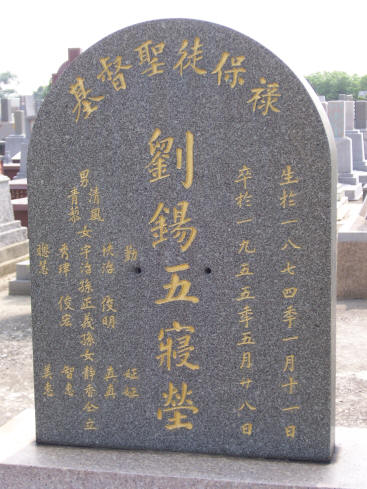 基督聖徒保祿
生於一八七四年一月十一日
卒於一九五五年五月廿八日
劉錫五寢塋
勤
治 俊明
男清風 女宇治 孫正義 孫女靜香 仝立
青黎 俊宏 智惠
聰慧 美惠